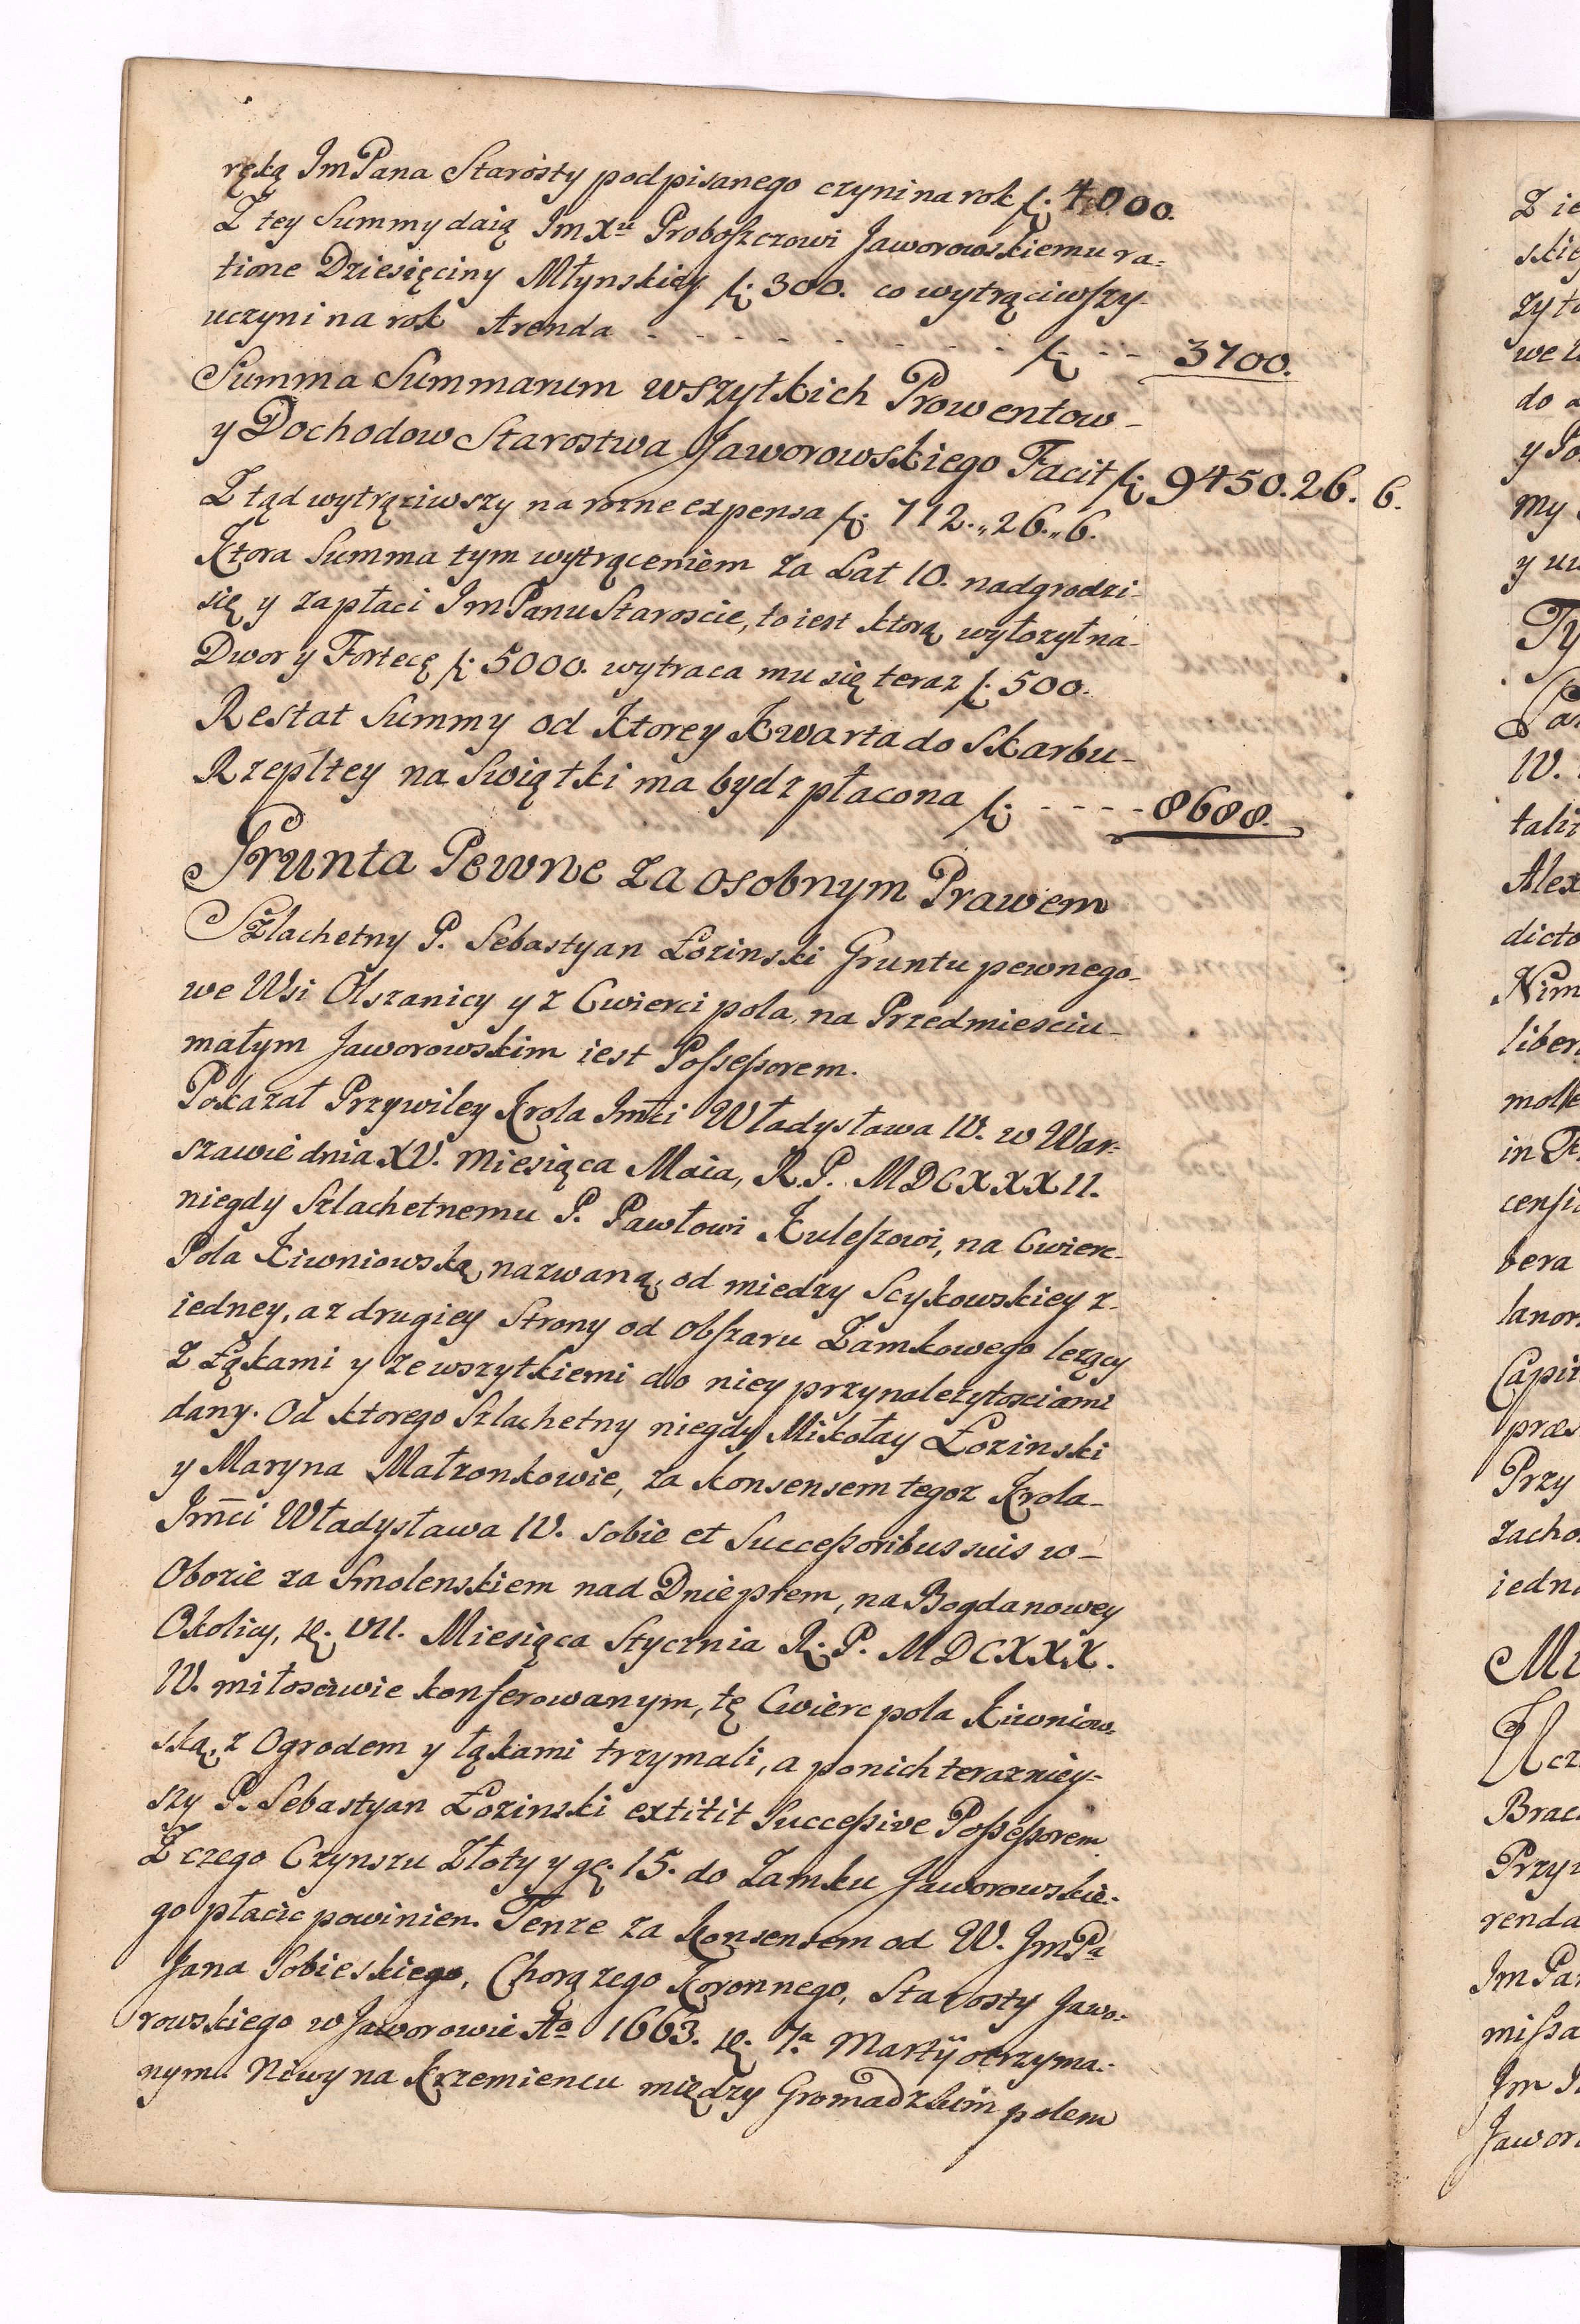 ręką ImPana Starosty podpisanego czyni na rok f. 4000.
Z tey Summy daią Im Xu Proboszczowi Jaworowskiemu ra=
tione Dziesięciny Młynskiey f. 300. co wytrąciwszy
uczyni na rok Arenda - - - - - - - - f. - - 3700.
Summa Summarum wszytkich Prowentow-
y Dochodow Starostwa Jaworowskiego Facit f. 9450.26.6.
Z tąd wytrąciwszy na rozne expensa f. 712.„26.„6.
Ktora Summa tym wytrąceniem za Lat 10. nadgrodzi-
się y zapłaci ImPanu Staroscie, to iest ktorą wyłozył na-
Dwor y Fortecę f. 5000. wytraca mu się teraz f. 500.
Restat Summy od Ktorey Kwarta do Skarbu-
Rzepltey na Swiątki ma bydz płacona f. - - - - 8688.
Grunta Pewne za osobnym Prawem
Szlachetny P. Sebastyan Łozinski Gruntu pewnego-
we Wsi Olszanicy y z Cwierci pola, na Przedmiesciu-
małym Jaworowskim iest Possessorem.
Pokazał Przywiley Krola Imci Władysława IV. w War=
szawie dnia XV. Miesiąca Maia, R.P. MDCXXXII.
niegdy Szlachetnemu P. Pawłowi Kuleszowi, na Cwierc-
Pola Kiwniowską nazwaną, od miedzy Scykowskiey z-
iedney, a z drugiey Strony od Obszaru Zamkowego lezący
z Łąkami y ze wszytkiemi do niey przynalezytosciami
dany. Od ktorego Szlachetny niegdy Mikołay Łozinski
y Maryna Małzonkowie, za konsensem tegoz Krola-
Imci Władysława IV. sobie et Successoribus suis w-
Obozie za Smolenskiem nad Dnieprem, na Bogdanowey
Okolicy, d. VII. Miesiąca Stycznia R. P. MDCXXX.
IV. miłosciwie konferowanym, tę Cwierc pola Kiwniow-
ską, z Ogrodem y łąkami trzymali, a po nich terazniey=
szy P. Sebastyan Łozinski extitit Successive Possessorem.
Z czego Czynszu Złoty y gr. 15. do Zamku Jaworowskie=
go płacic powinien. Tenze za Konsensem od W. ImPa
Jana Sobieskiego, Chorązego Koronnego, Starosty Jawo=
rowskiego w Jaworowie Ao 1663. d. 7a Martij otrzyma=
nym Niwy na Krzemiencu między Gromadzkim polem